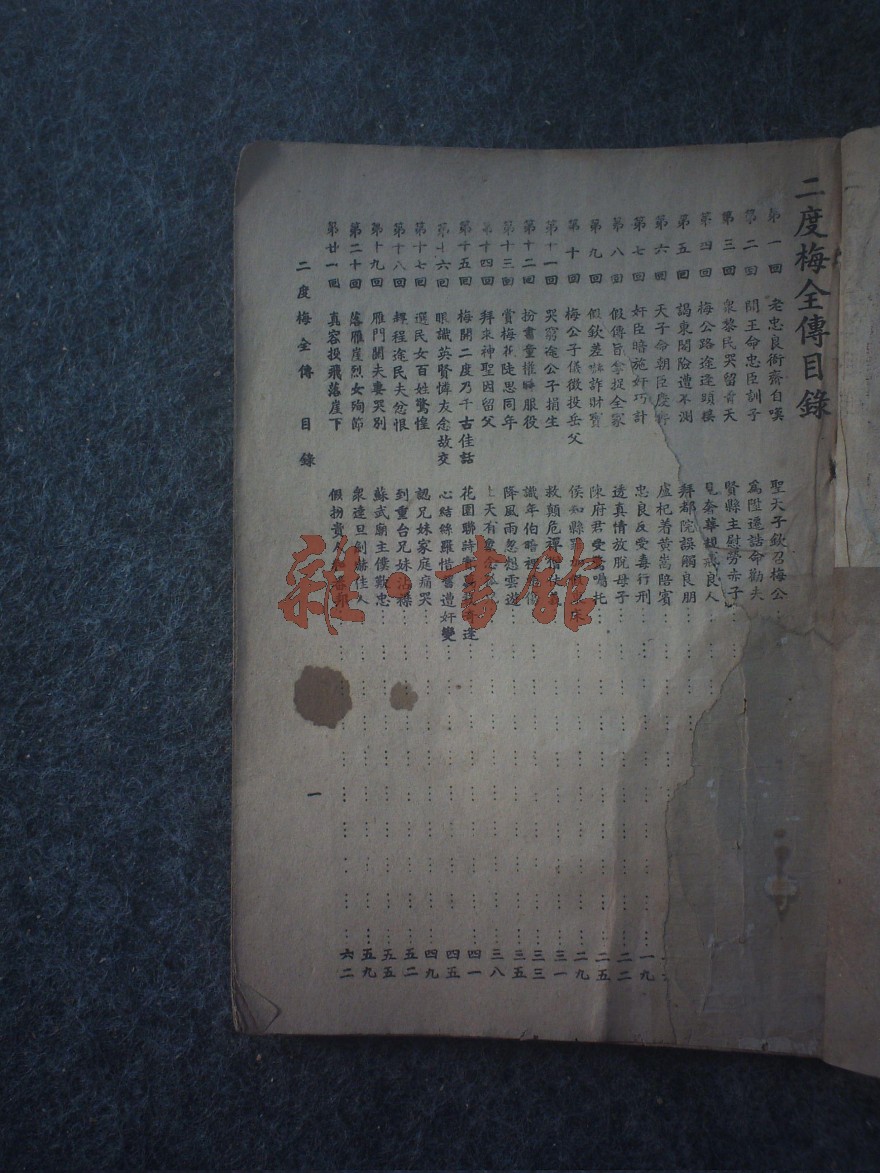 二度梅全傳目錄
第一回 老忠良衙齋自嘆 聖天子欽召梅公
第二回 聞王命忠臣訓子 為陞遷詰命勸夫
第三回 衆黎民哭留青天 賢縣主慰勞赤子
第四回 梅公路途逢頭模 見秦華想慕良人
第五回 謁東閣險遭不測 拜都院誤觸良朋
第六回 天子命朝臣慶壽 盧杞着黄嵩陪賓
第七回 奸臣暗施奸巧計 忠良反受毒行刑 一九
第八回 假傳旨拿捉全家 透真情放脫母子 二二
第九回 假欽差嚇詐財寶 陳府君受 囑托 二五
第十回 梅公子儀徵投岳父 侯知縣 床 二九
第十一回 哭窮途公子捐生 救顛危禪僧 三一
第十二回 扮書童權時服役 識年伯略 三三
第十三回 賞梅花陡思同年 降風雨忽想雲遊 三五
第十四回 拜求神聖因留父 上天有 三八
第十五回 梅開二度乃千古佳話 花園聯詩 逢 四一
第十六回 眼識英賢憐友念故交 心結絲羅惜 遭奸變 四五
第十七回 選民女百姓驚惶 認兄妹家庭痛哭 四九
第十八回 趕程途民夫忿恨 到重台兄妹沾襟 五二
第十九回 雁門關夫妻哭別 蘇武廟主僕歎忠 五五
第二十回 落雁崖烈女殉節 衆達旦劍赫佳人 五九
第廿一回 真容投飛落崖下 假扮貴人 邦 六二
二度梅全傳 目錄 一
雜·書館